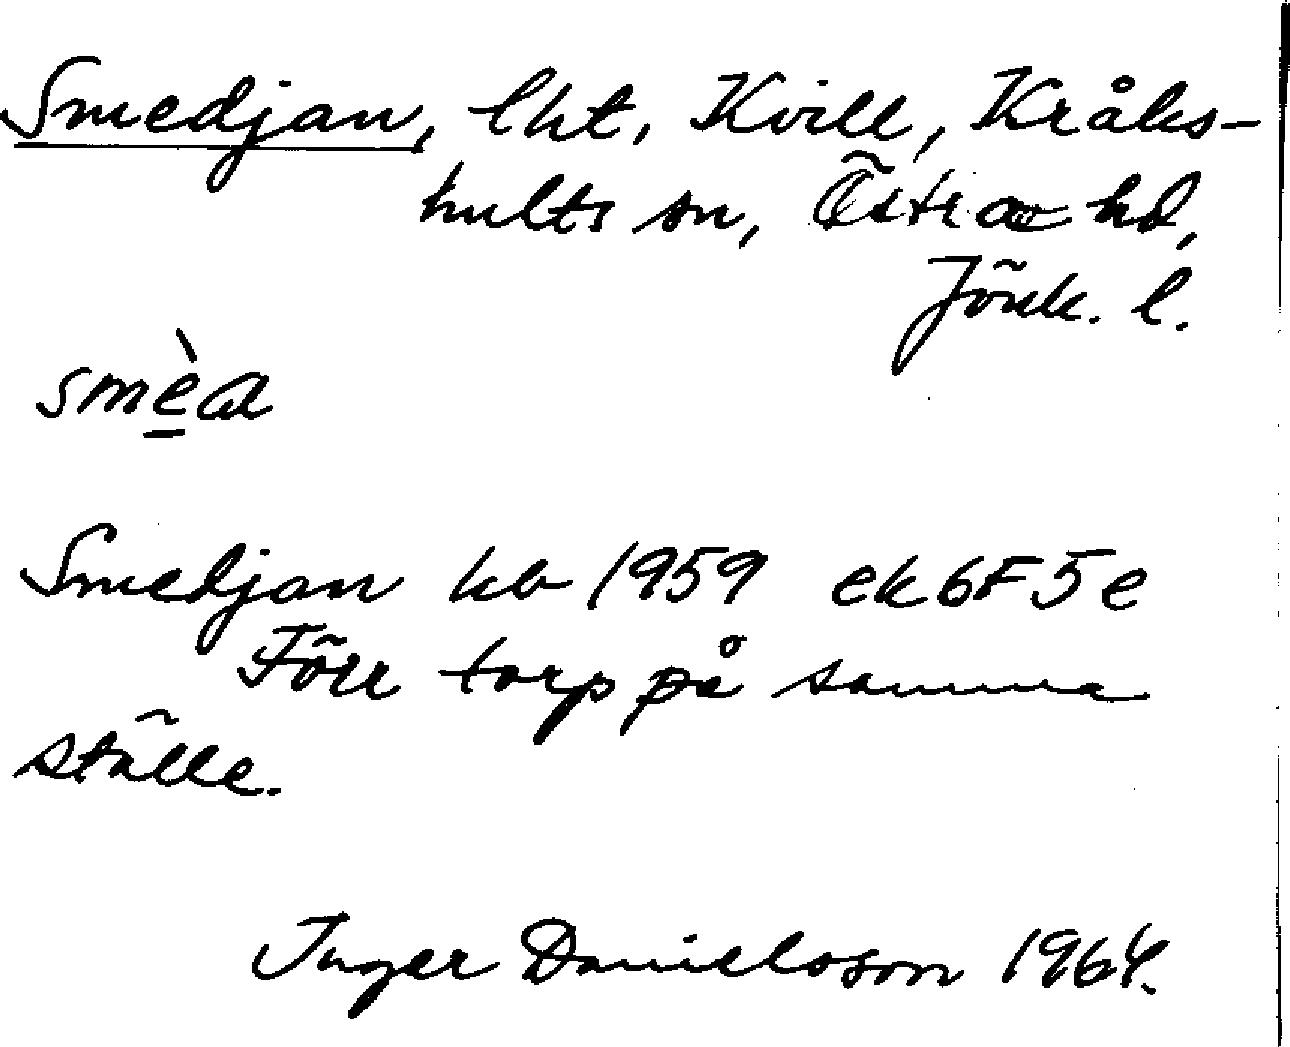 Smedjan, lht, Kvill, Kråks-
hults sn, Östra hd,
Jönk. l.
smè̱a
Smedjan kb 1959 ek 6F5e
Förr torp på samma
ställe.
Inger Danielsson 1964.